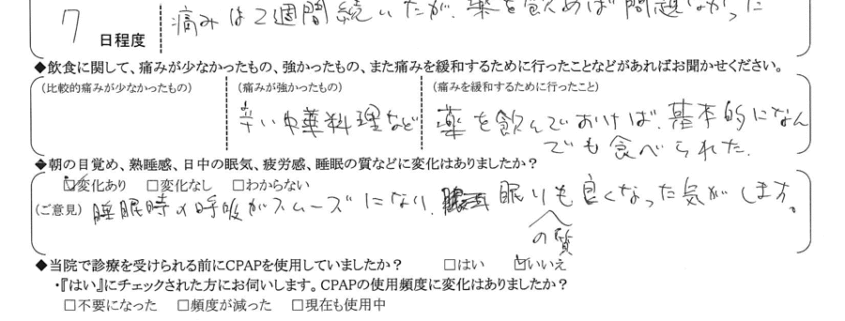 7 日程度 痛みは2週間続いたが、薬を飲めば問題なかった
◆飲食に関して、痛みが少なかったもの、強かったもの、また痛みを緩和するために行ったことなどがあればお聞かせください。
(比較的痛みが少なかったもの) (痛みが強かったもの) (痛みを緩和するために行ったこと)
辛い中華料理など 薬を飲んでおけば、基本的になん
でも食べられた.
◆朝の目覚め、熟睡感、日中の眠気、疲労感、睡眠の質などに変化はありましたか?
☑変化あり □変化なし □わからない
(ご意見) 睡眠時の呼吸がスムーズになり、眠りも良くなった気がします。
の質
◆当院で診療を受けられる前にCPAPを使用していましたか? □はい ☑いいえ
・『はい』にチェックされた方にお伺いします。CPAPの使用頻度に変化はありましたか?
□不要になった □頻度が減った □現在も使用中